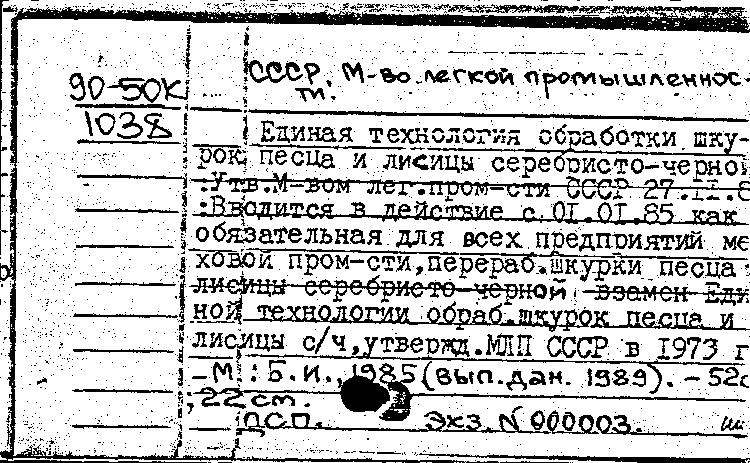 90-50К
СССР. М-во легкой промышленнос-
ти.
1038
Единая технология обработки шку-
рок песца и лисицы серебристо-черной
:Утв.М-вом лег.пром-сти СССР 27.11.8
:Вводится в действие с 01.01.85 как
обязательная для всех предприятий ме
ховой пром-сти, перераб.шкурки песца
лисицы серебристо-черной взамен Еди
ной технологии обраб.шкурок песца и
лисицы с/ч,утвержд.МЛП СССР в 1973 г
-М.: Б.И., 1985 (вып.дан. 1989). - 52с
; 22 см.
ДСП. Экз. N 000003.